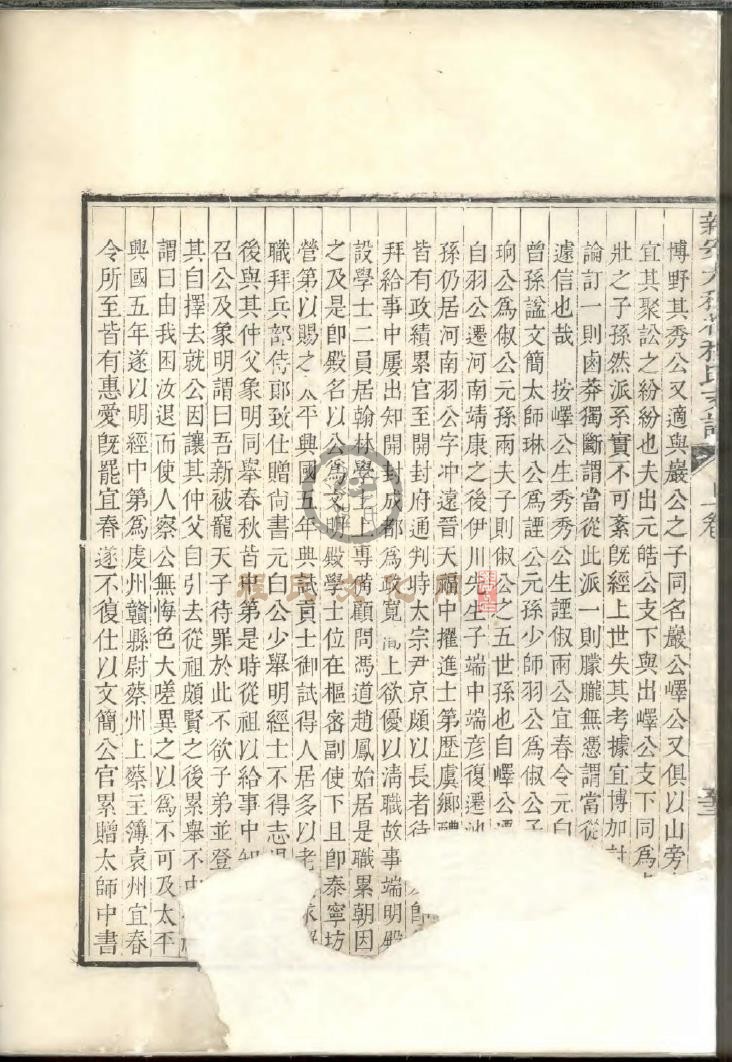 新安大程村程氏支譜
上卷
博野其秀公又適與巖公之子同名巖公嶧公又俱以山旁
宜其聚訟之紛紛也夫出元皓公支下與出嶧公支下同爲
壯之子孫然派系實不可紊旣經上世失其考據宜博加討
論訂一則鹵莽獨斷謂當從此派一則朦朧無憑謂當從
遽信也哉 按嶧公生秀秀公生諲俶兩公宜春令元白
曾孫謚文簡太師琳公爲諲公元孫少師羽公爲俶公子
珦公爲俶公元孫兩夫子則俶公之五世孫也自嶧公遷
自羽公遷河南靖康之後伊川先生子端中端彥復遷池
孫仍居河南羽公字冲遠晉天福中擢進士第歷虞鄉醴
皆有政績累官至開封府通判時太宗尹京頗以長者待
拜給事中屢出知開封成都爲政寬 簡上欲優以淸職故事端明殿
設學士二員居翰林學士上專備顧問馮道趙鳳始居是職累朝因
之及是卽殿名以公爲文明殿學士位在樞密副使下且卽泰寧坊
營第以賜之太平興國五年典試貢士御試得人居多以老
職拜兵部侍郞致仕贈尙書元白公少舉明經士不得志退
後與其仲父象明同舉春秋皆中第是時從祖以給事中知
召公及象明謂曰吾新被寵天子待罪於此不欲子弟並登
其自擇去就公因讓其仲父自引去從祖頗賢之後累舉不中
謂曰由我困汝退而使人察公無悔色大嗟異之以爲不可及太平
興國五年遂以明經中第爲虔州贛縣尉蔡州上蔡主簿袁州宜春
令所至皆有惠愛旣罷宜春遂不復仕以文簡公官累贈太師中書